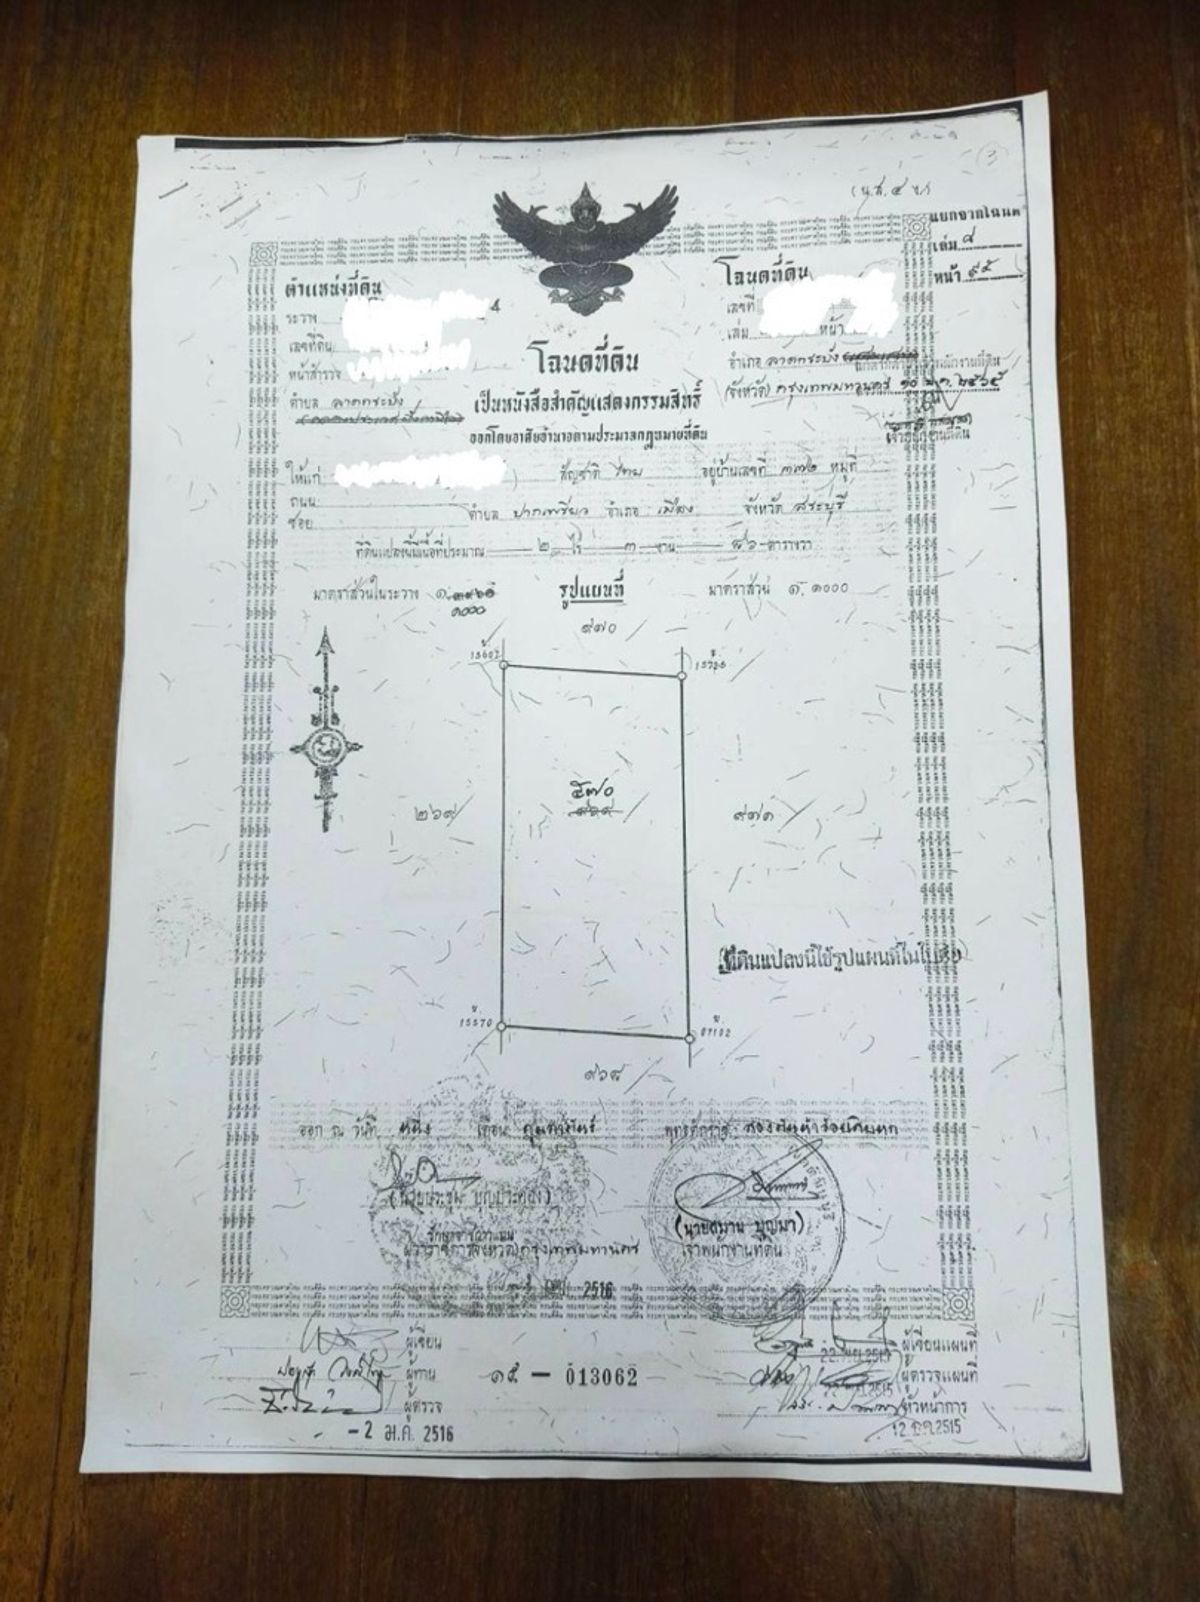 (น.ส. ๔ ข.)
แยกจากโฉนด
เล่ม ๘
หน้า ๙๕
ตำแหน่งที่ดิน
ระวาง 4
เลขที่ดิน
หน้าสำรวจ
ตำบล ลาดกระบัง
โฉนดที่ดิน
เลขที่
เล่ม หน้า
อำเภอ ลาดกระบัง
(จังหวัด) กรุงเทพมหานคร
เจ้าพนักงานที่ดิน
โฉนดที่ดิน
เป็นหนังสือสำคัญแสดงกรรมสิทธิ์
ออกโดยอาศัยอำนาจตามประมวลกฎหมายที่ดิน
ให้แก่ สัญชาติ ไทย อยู่บ้านเลขที่ ๓๓๒ หมู่ที่
ถนน
ซอย ตำบล ปากเพรียว อำเภอ เมือง จังหวัด สระบุรี
ที่ดินแปลงนี้มีเนื้อที่ประมาณ ๒ ไร่ ๓ งาน ๘๖ ตารางวา
มาตราส่วนในระวาง ๑: ๑๐๐๐ รูปแผนที่ มาตราส่วน ๑: ๑๐๐๐
๙๗๐
๒๖๙ ๙๗๑
ที่ดินแปลงนี้ใช้รูปแผนที่ในใบต่อ
15570 07102
๙๖๘
ออก ณ วันที่ หนึ่ง เดือน กุมภาพันธ์ พุทธศักราช สองพันห้าร้อยสิบหก
(นายสมาน บุญมา)
ผู้ว่าราชการ(จังหวัด)กรุงเทพมหานคร เจ้าพนักงานที่ดิน
2516
ผู้เขียน
ผู้ทาน
ผู้ตรวจ
- 2 ม.ค. 2516
๑๕ — 013062
ผู้เขียนแผนที่
ผู้ตรวจแผนที่
หัวหน้าการ
12 ธ.ค. 2515